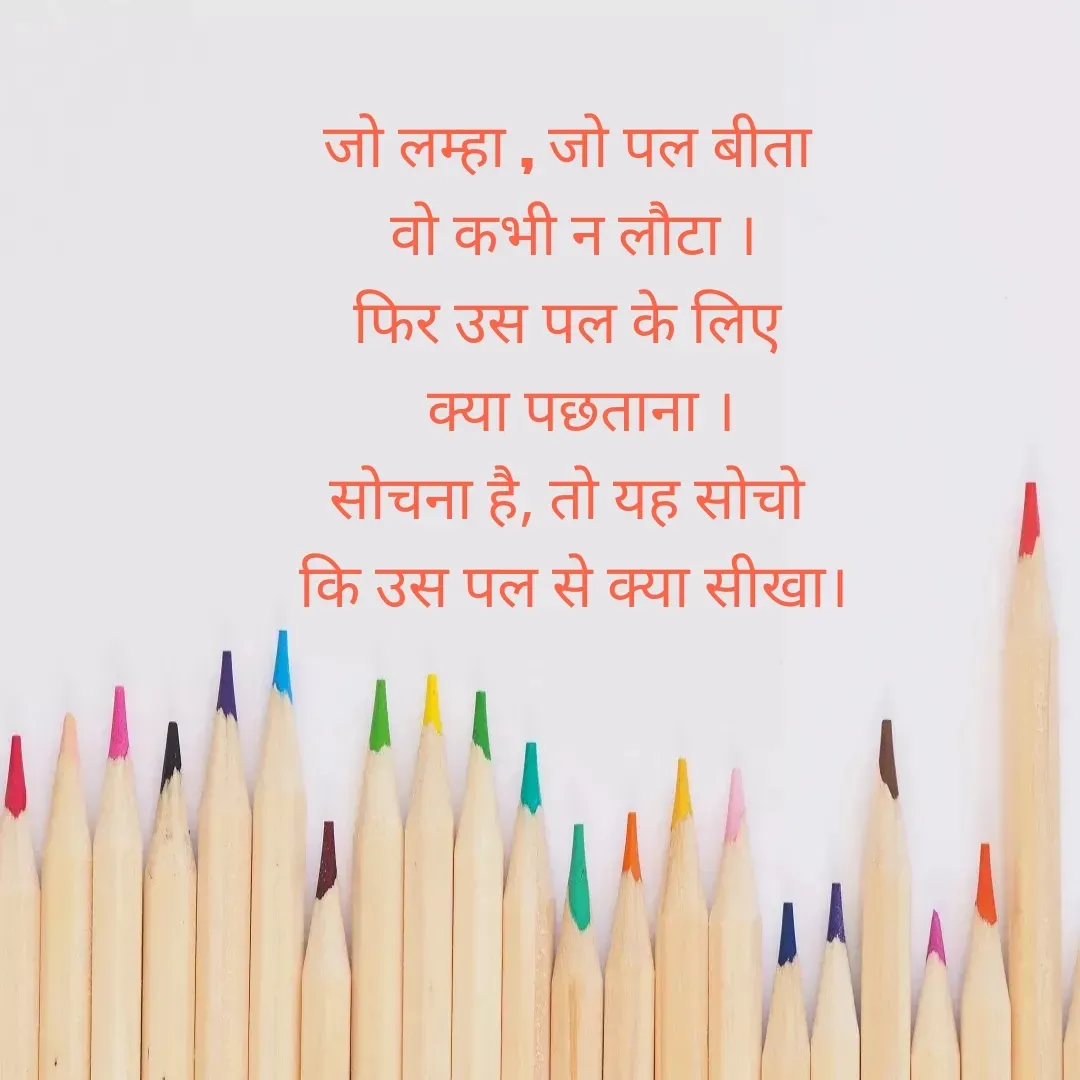 जो लम्हा , जो पल बीता
वो कभी न लौटा ।
फिर उस पल के लिए
क्या पछताना ।
सोचना है, तो यह सोचो
कि उस पल से क्या सीखा।